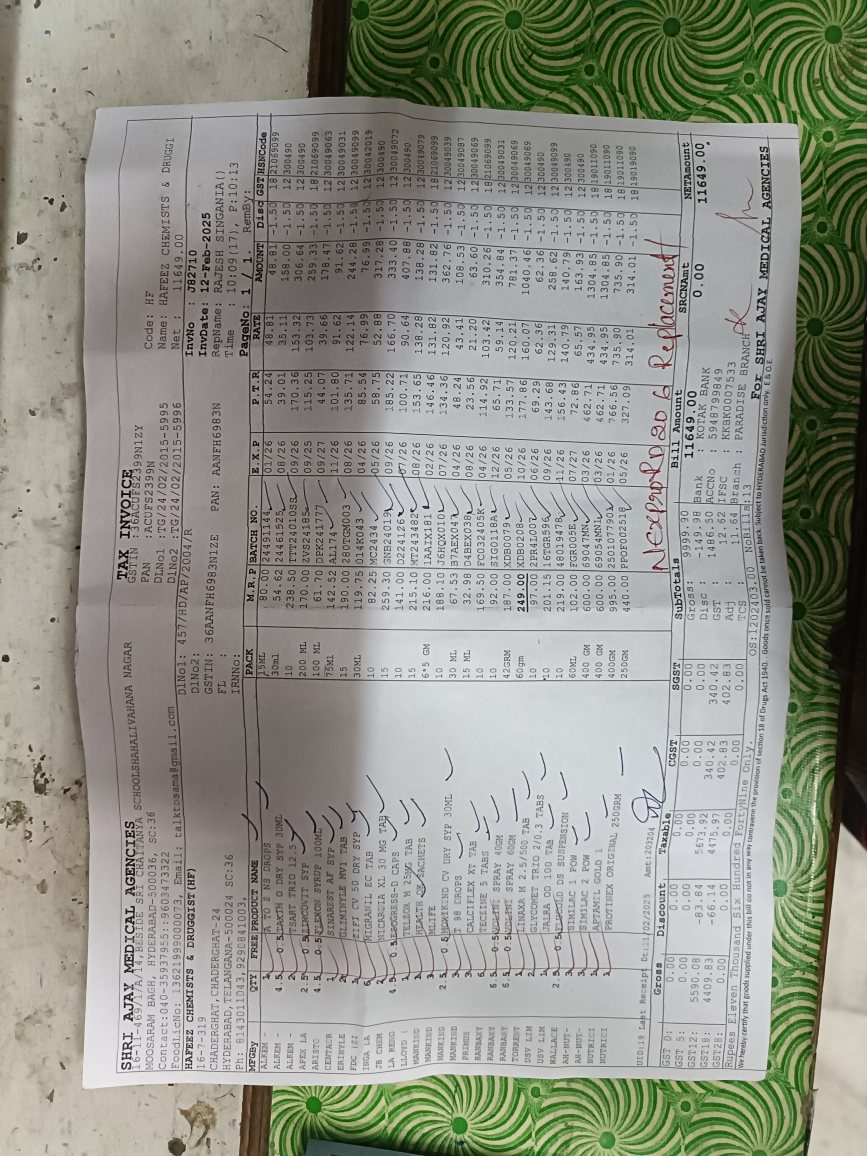 SHRI AJAY MEDICAL AGENCIES
16-11-469/1/A/14, BESIDE SRI CHAITANYA SCHOOLSHAHALIVAHANA NAGAR
MOOSARAM BAGH, HYDERABAD-500036, SC:36
Contact:040-35937955::9603473322
FoodLicNo: 13621999000073, Email: talktosama@gmail.com
TAX INVOICE
GSTIN :36ACUFS2399N1ZY
PAN :ACUFS2399N
DlNo1 :TG/24/02/2015-5995
DlNo2 :TG/24/02/2015-5996
Code: HF
Name: HAFEEZ CHEMISTS & DRUGGI
Net : 11649.00
HAFEEZ CHEMISTS & DRUGGIST(HF)
16-7-319
CHADERGHAT, CHADERGHAT-24
HYDERABAD, TELANGANA-500024 SC:36
Ph: 8143011043, 9290841003,
DlNo1: 457/HD/AP/2004/R
DlNo2:
GSTIN: 36AANFH6983N1ZE PAN: AANFH6983N
FL :
IRNNo:
InvNo : J82710
InvDate: 12-Feb-2025
RepName: RAJESH SINGANIA()
Time : 10:09(17), P:10:13
PageNo: 1 / 1. RemBy:
MFGBy QTY FREE PRODUCT NAME PACK M.R.P BATCH NO. E.X.P P.T.R RATE AMOUNT Disc GST HSNCode
ALKEM A TO Z NS DROPS 15ML 80.00 24491144 01/26 54.24 48.81 48.81 -1.50 18 21069099
ALKEM - 4.5 0.5 30ml 54.62 08/26 39.01 35.11 158.00 -1.50 12 300490
ALKEM 2 10 238.50 TTT24010SS 09/26 170.36 153.32 306.64 -1.50 12 300490
APEX LA 2.5 0.5 200 ML 170.00 ZVS24185 09/25 115.25 103.73 259.33 -1.50 18 21069099
ARISTO 4.5 0.5 FLEXON SYRUP 100ML 100 ML 61.70 DPK241777 09/27 44.07 39.66 178.47 -1.50 12 30049063
CENTAUR 1 SINAREST AF SYP 75ML 142.52 AL174 11/26 101.80 91.62 91.62 -1.50 12 30049031
ERINYLE 2 GLIMINYLE MV1 TAB 15 190.00 280TGM003 08/26 135.71 122.14 244.28 -1.50 12 30049099
FDC 1 ZIFI CV 50 DRY SYP 30ML 119.75 014K043 04/26 85.54 76.99 76.99 -1.50 12 30042019
INGA LA 6 MIGRANIL EC TABS 10 82.25 MC2434 05/26 58.75 52.88 317.28 -1.50 12 300490
JB CHEM 2 NICARDIA XL 30 MG TAB 15 259.30 GNB24019 09/26 185.22 166.70 333.40 -1.50 12 30049072
LA RENO 4.5 0.5 10 141.00 D224126 07/26 100.71 90.64 407.88 -1.50 12 300490
LLOYD 1 TELEOX M 25MG TAB 15 215.10 MT243482 08/26 153.65 138.28 138.28 -1.50 12 30049079
MANKIND 1 HEALTH OK SACHETS 6*5 GM 216.00 1AAIX181 02/26 146.46 131.82 131.82 -1.50 18 21069099
MANKIND 3 MLIFE 10 188.10 J6HQX010 07/26 134.36 120.92 362.76 -1.50 12 30049039
MANKIND 2.5 0.5 MOMIKIND CV DRY SYP 30ML 30 ML 67.53 B7AEX047 04/26 48.24 43.41 108.53 -1.50 12 30049087
PRIMUS 3 T 98 DROPS 15 ML 32.98 D4BEX038 08/26 23.56 21.20 63.60 -1.50 12 300490
RANBAXY 3 CALCIFLEX XT TAB 10 169.50 FC032405K 04/26 114.92 103.42 310.26 -1.50 18 21069099
RANBAXY 6 TECZINE 5 TABS 10 92.00 SIG0118A 12/26 65.71 59.14 354.84 -1.50 12 30049031
RANBAXY 6.5 0.5 VOLINI SPRAY 40GM 42GRM 187.00 XDB0079 05/26 133.57 120.21 781.37 -1.50 12 30049069
6.5 0.5 VOLINI SPRAY 60GM 60gm 249.00 XDB0208 10/26 177.86 160.07 1040.46 -1.50 12 30049069
USV LIM 1 10 97.00 06/26 69.29 62.36 62.36 -1.50 12 300490
USV LIM 2 GLYCOMET TRIO 2/0.3 TABS 10 201.15 16TGR596 09/26 143.68 129.31 258.62 -1.50 12 30049099
WALLACE 1 10 219.00 48019478 11/26 156.43 140.79 140.79 -1.50 12 300490
2.5 0.5 60ML 102.00 FGR005E 07/27 72.86 65.57 163.93 -1.50 12 300490
AH-NUT- 3 SIMILAC 1 POW 400 GM 600.00 69047MN 03/26 462.71 434.95 1304.85 -1.50 18 19011090
AH-NUT- 3 SIMILAC 2 POW 400 GM 600.00 69054MN1 03/26 462.71 434.95 1304.85 -1.50 18 19011090
NUTRICI 1 APTAMIL GOLD 1 400GM 995.00 250107790 01/26 766.56 735.90 735.90 -1.50 18 19011090
NUTRICI 1 PROTINEX ORIGINAL 250GRM 250GM 440.00 PPOF002518 05/26 327.09 314.01 314.01 -1.50 18 19019090
UID:19 Last Receipt Dt:11/02/2025 Amt:203204
Gross Discount Taxable CGST SGST SubTotals Bill Amount SRCNAmt NETAmount
GST 0: 0.00 0.00 0.00 0.00 0.00 Gross: 9999.90 11649.00 0.00 11649.00
GST 5: 0.00 0.00 0.00 0.00 0.00 Disc : -149.98 Bank : KOTAK BANK
GST12: 5590.08 -83.84 5673.92 340.42 340.42 GST : 1486.50 ACCNo : 5948799849
GST18: 4409.83 -66.14 4475.97 402.83 402.83 12.62 IFSC : KKBK0007533
GST28: 0.00 0.00 0.00 0.00 0.00 Adj 11.64 Branch : PARADISE BRANCH
TCS :
Rupees Eleven Thousand Six Hundred FortyNine Only. OS:1202403.00 NoBills:13
For SHRI AJAY MEDICAL AGENCIES
We hereby certify that goods supplied under this bill do not in any way contravene the provision of section 18 of Drugs Act 1940. Goods once sold cannot be taken back. Subject to HYDERABAD Jurisdiction only. E & O.E